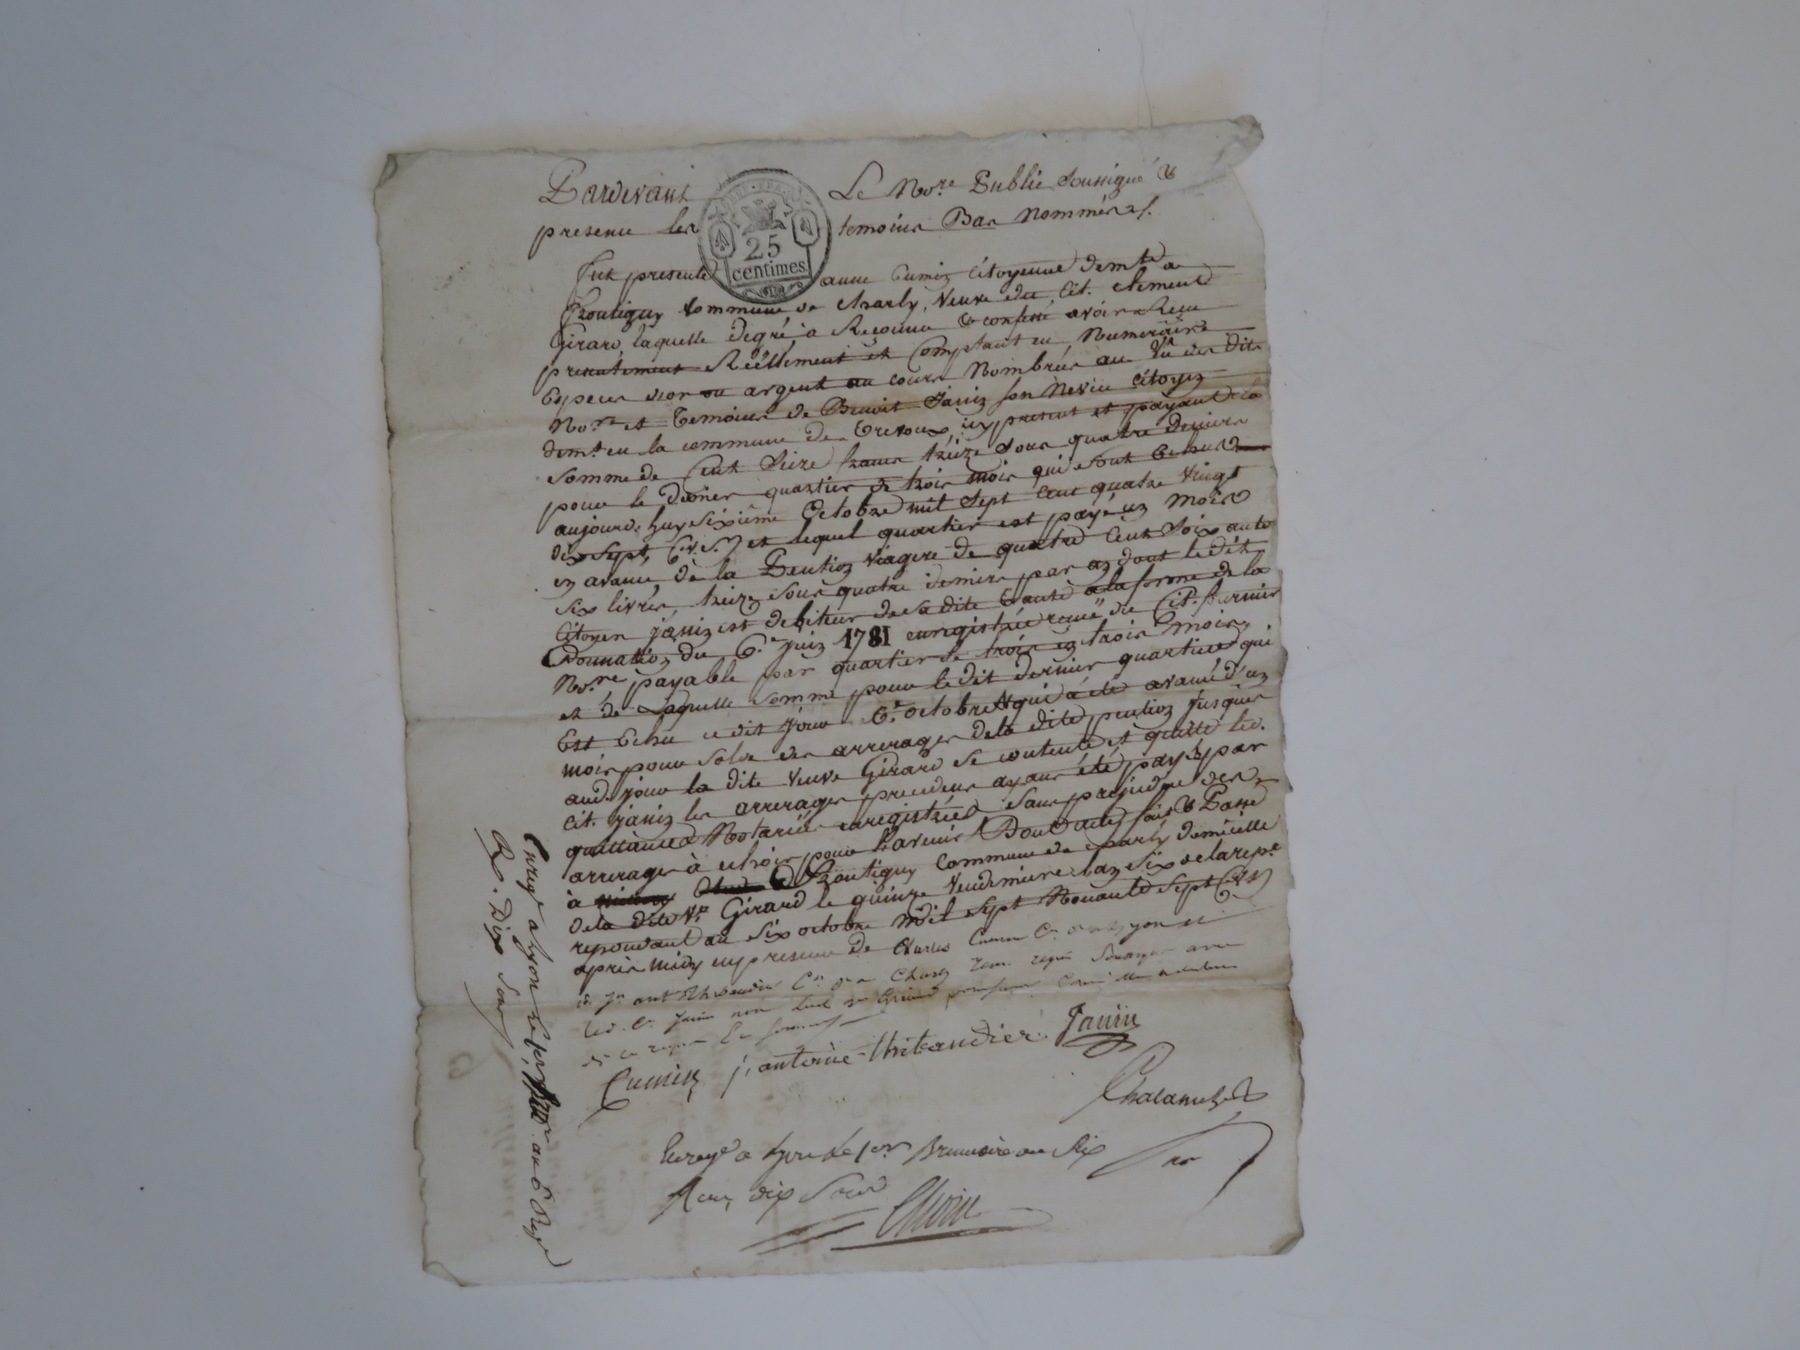 Pardevant Le No.re Public Soussigné &
presence les temoins Bas Nommés
25
centimes
Fut presente anne Cumin Citoyenne demte a
commune de charly, Veuve du Cit. Clement
Girard, laquelle degré à Reconnu & confessé avoir Reçu
presentement Réellement et Comptant en Numeraire
Especes d'or ou argent au cours Nombrées au Vû des dits
No.re et Temoins de Benoit Janin son Neveu Citoyen
demt en la commune de Trevoux, icy present et payant la
somme de Cent Seize francs treize sous quatre deniers
pour le Dernier quartier de trois mois qui sont Echus
aujourd'huy sixième Octobre mil Sept Cent quatre Vingt
dix Sept, (v. s.) et lequel quartier est payé un Mois
en avance, de la Pention Viagere de quatre Cent Soixante
Six livres, treize sous quatre deniers par an dont le dit
Citoyen janin est debiteur de sa dite Tante a la forme de la
Donnation du 6.e juin 1781 enregistrée receue du Cit. furnier
No.re payable par quartier de trois en trois mois,
et de Laquelle somme pour le dit dernier quartier qui
Est Echu ce dit jour 6.e octobre & qui a été avancé d'un
mois pour Solde des arrerages de la dite pention jusques
aud. jour la dite Veuve Girard se contente et quitte led.
Cit. janin les arrerages precedens ayant été payés par
quittances Notariées enregistrées Sans prejudice des
arrerages à echoir pour l'avenir Dont acte fait & Passé
à Commune de Charly domicille
de la dite V.e Girard le quinze Vendemiere l'an Six de la rep.e
repondant au Six octobre Mil Sept Nonante Sept (v. s.)
après midy en presence de Charles Cumin
Cumin j. antoine Thibaudier Janin
Enregé a Lyon le 1er Brumaire an Six
Reçu dix Sous
Enregé a Lyon le 1er Bre an 6
R. Dix Sous